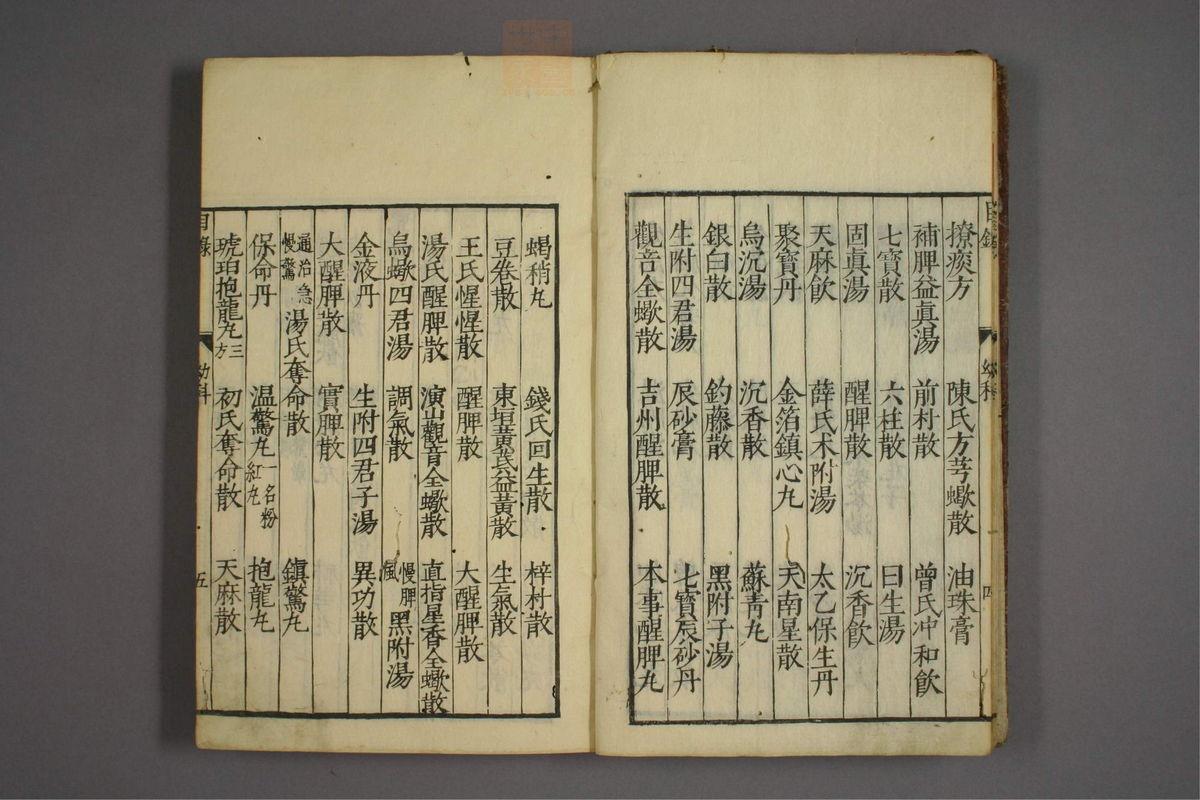 目錄 幼科 四
撩痰方 陳氏方芎蠍散 油珠膏
補脾益眞湯 前村散 曾氏冲和飮
七寶散 六柱散 日生湯
固眞湯 醒脾散 沉香飮
天麻飮 薛氏术附湯 太乙保生丹
聚寶丹 金箔鎮心丸 天南星散
烏沉湯 沉香散 蘇青丸
銀白散 釣藤散 黑附子湯
生附四君湯 辰砂膏 七寶辰砂丹
觀音全蠍散 吉州醒脾散 本事醒脾丸
蝎稍丸 錢氏回生散 梓村散
豆卷散 東垣黃芪益黃散 生氣散
王氏惺惺散 醒脾散 大醒脾散
湯氏醒脾散 演山觀音全蠍散 直指星香全蠍散
烏蠍四君湯 調氣散 慢脾風 黑附湯
金液丹 生附四君子湯 異功散
大醒脾散 實脾散
通治急慢驚 湯氏奪命散 鎮驚丸
保命丹 温驚丸一名粉紅丸 抱龍丸
琥珀抱龍丸三方 初氏奪命散 天麻散
目錄 幼科 五